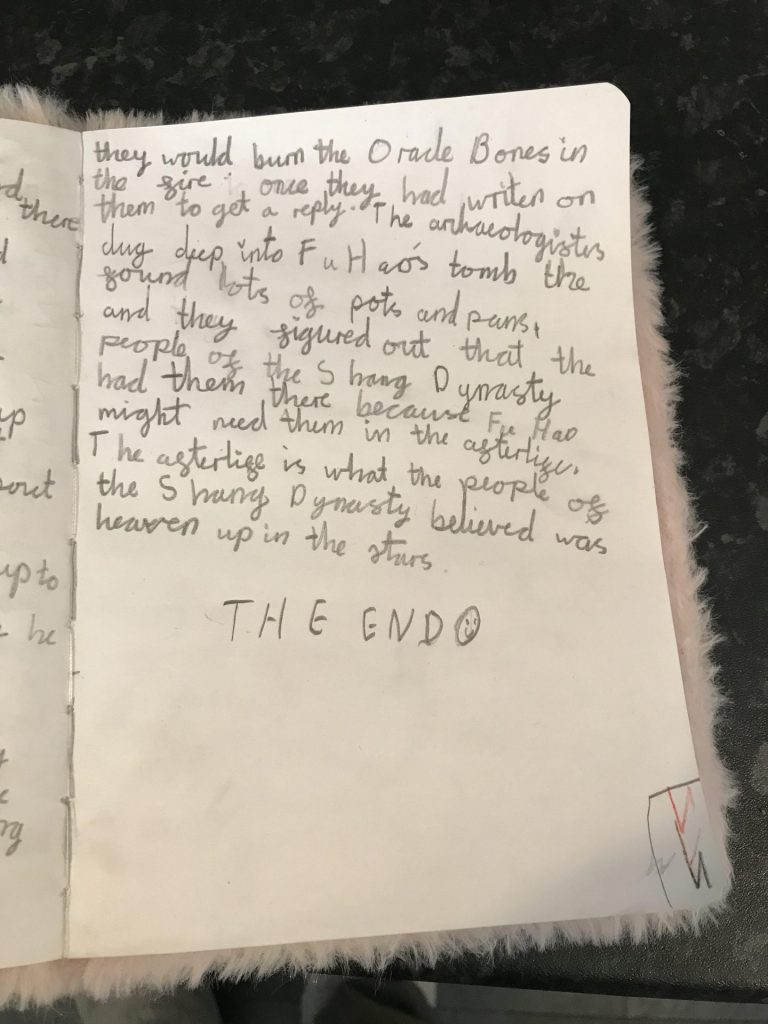 rd
there
d
up
out
up to
he
rg
they would burn the Oracle Bones in
the fire once they had writen on
them to get a reply. The archaeologistes
dug deep into Fu Hao's tomb the
found lots of pots and pans,
and they figured out that the
people of the Shang Dynasty
had them there because Fu Hao
might need them in the afterlife.
The afterlife is what the people of
the Shang Dynasty believed was
heaven up in the stars.
THE END